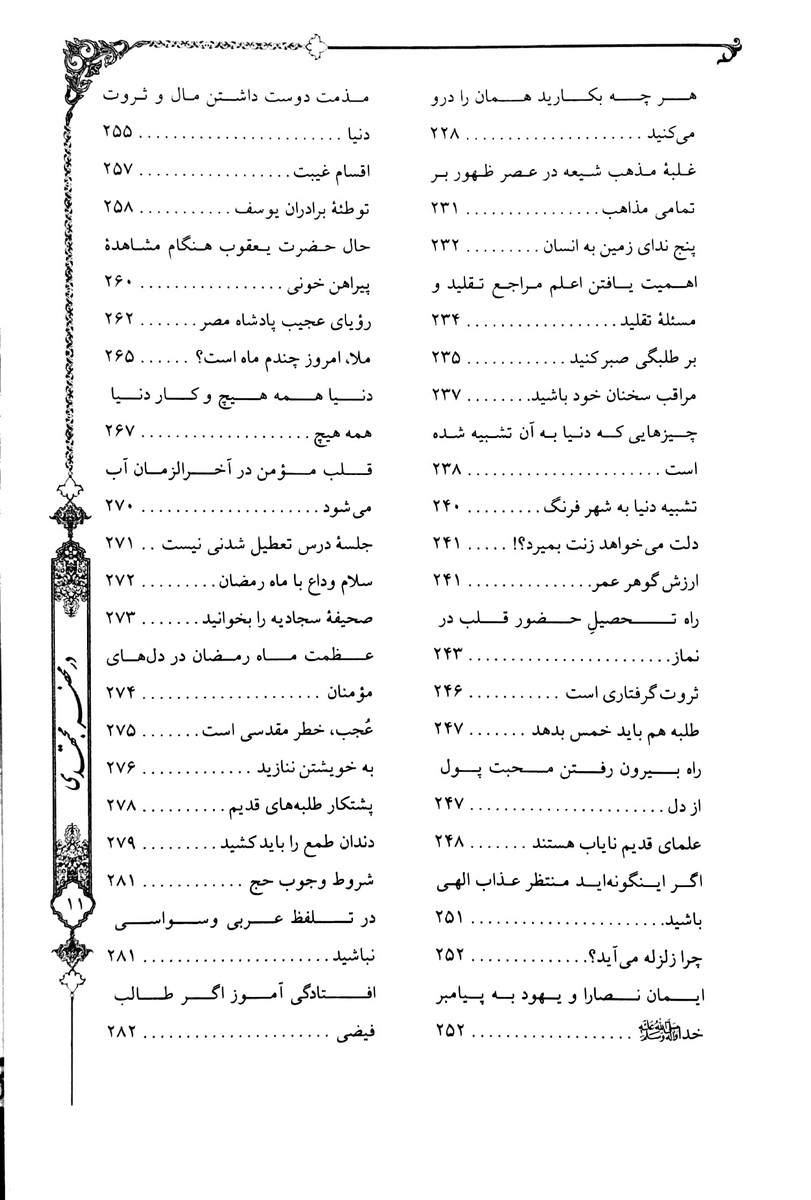 هر چه بکارید همان را درو
می‌کنید ..................... ۲۲۸
غلبهٔ مذهب شیعه در عصر ظهور بر
تمامی مذاهب ................ ۲۳۱
پنج ندای زمین به انسان ......... ۲۳۲
اهمیت یافتن اعلم مراجع تقلید و
مسئلهٔ تقلید .................. ۲۳۴
بر طلبگی صبر کنید ............ ۲۳۵
مراقب سخنان خود باشید ........ ۲۳۷
چیزهایی که دنیا به آن تشبیه شده
است ....................... ۲۳۸
تشبیه دنیا به شهر فرنگ ......... ۲۴۰
دلت می‌خواهد زنت بمیرد؟! ..... ۲۴۱
ارزش گوهر عمر .............. ۲۴۱
راه تحصیلِ حضور قلب در
نماز ........................ ۲۴۳
ثروت گرفتاری است ........... ۲۴۶
طلبه هم باید خمس بدهد ....... ۲۴۷
راه بیرون رفتن محبت پول
از دل ...................... ۲۴۷
علمای قدیم نایاب هستند ....... ۲۴۸
اگر اینگونه‌اید منتظر عذاب الهی
باشید ....................... ۲۵۱
چرا زلزله می‌آید؟ .............. ۲۵۲
ایمان نصارا و یهود به پیامبر
خدا ﷺ .................. ۲۵۲
مذمت دوست داشتن مال و ثروت
دنیا ........................ ۲۵۵
اقسام غیبت .................. ۲۵۷
توطئهٔ برادران یوسف ........... ۲۵۸
حال حضرت یعقوب هنگام مشاهدهٔ
پیراهن خونی ................. ۲۶۰
رؤیای عجیب پادشاه مصر ....... ۲۶۲
ملا، امروز چندم ماه است؟ ...... ۲۶۵
دنیا همه هیچ و کار دنیا
همه هیچ .................... ۲۶۷
قلب مؤمن در آخرالزمان آب
می‌شود ..................... ۲۷۰
جلسهٔ درس تعطیل شدنی نیست .. ۲۷۱
سلام وداع با ماه رمضان ......... ۲۷۲
صحیفهٔ سجادیه را بخوانید ....... ۲۷۳
عظمت ماه رمضان در دل‌های
مؤمنان ..................... ۲۷۴
عُجب، خطر مقدسی است ....... ۲۷۵
به خویشتن ننازید ............. ۲۷۶
پشتکار طلبه‌های قدیم .......... ۲۷۸
دندان طمع را باید کشید ......... ۲۷۹
شروط وجوب حج ............ ۲۸۱
در تلفظ عربی وسواسی
نباشید ...................... ۲۸۱
افتادگی آموز اگر طالب
فیضی ...................... ۲۸۲
در محضر مجتهدی
۱۱